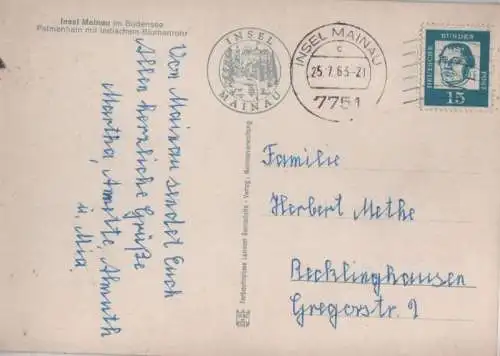 Insel Mainau im Bodensee
Palmenhain mit Indischem Blumenrohr
Von Mainau sendet Euch
Allen herzliche Grüße
Martha, Anette, Almuth
u. Mia.
INSEL
MAINAU
INSEL MAINAU
c
25.7.63-21
7751
DEUTSCHE BUNDES POST
15
Familie
Herbert Methe
Recklinghausen
Gregorstr. 9